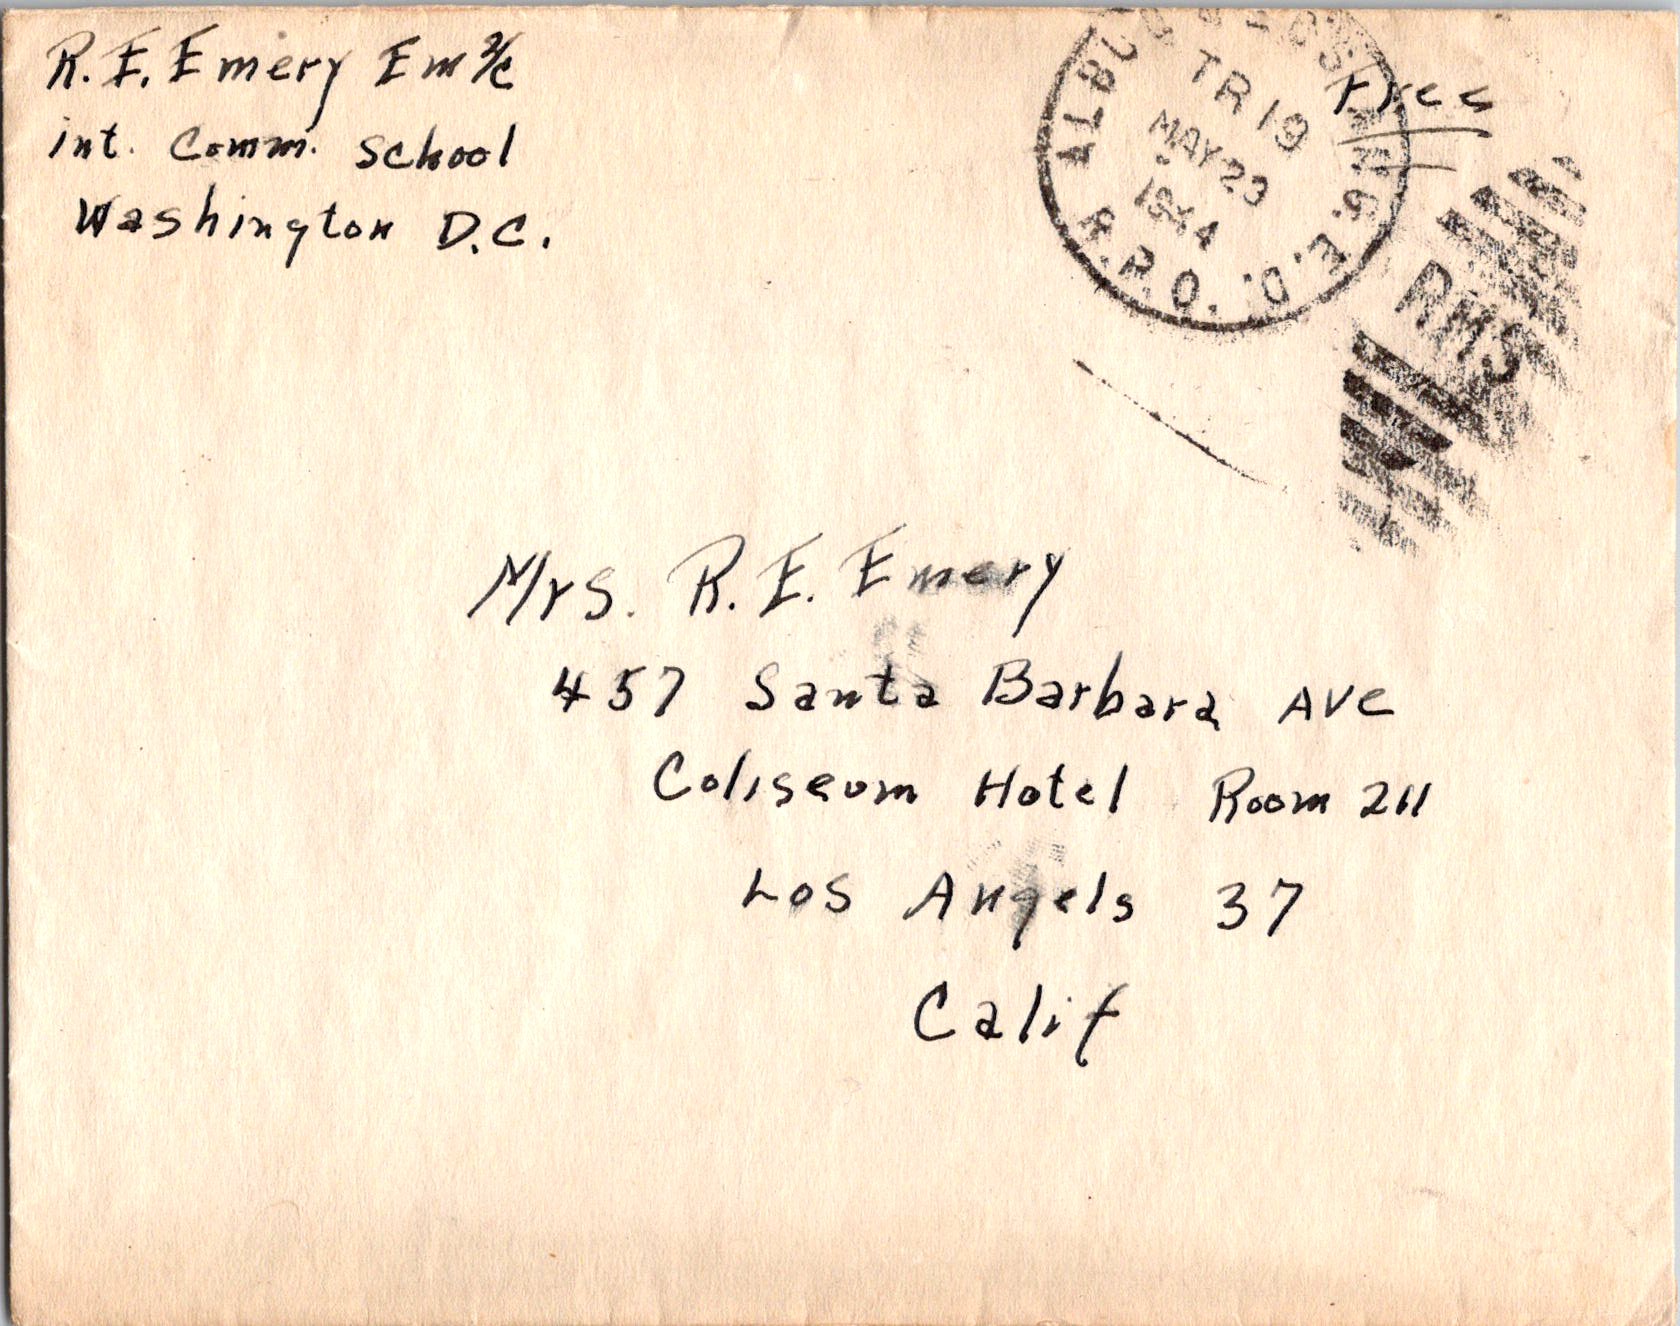 R. E. Emery Em 2/c
int. Comm. School
Washington D.C.
Free
ALBUQ. & LOS ANG. E.D.
R.P.O.
TR 19
MAY 23
1944
RMS
Mrs. R. E. Emery
457 Santa Barbara Ave
Coliseum Hotel Room 211
Los Angels 37
Calif